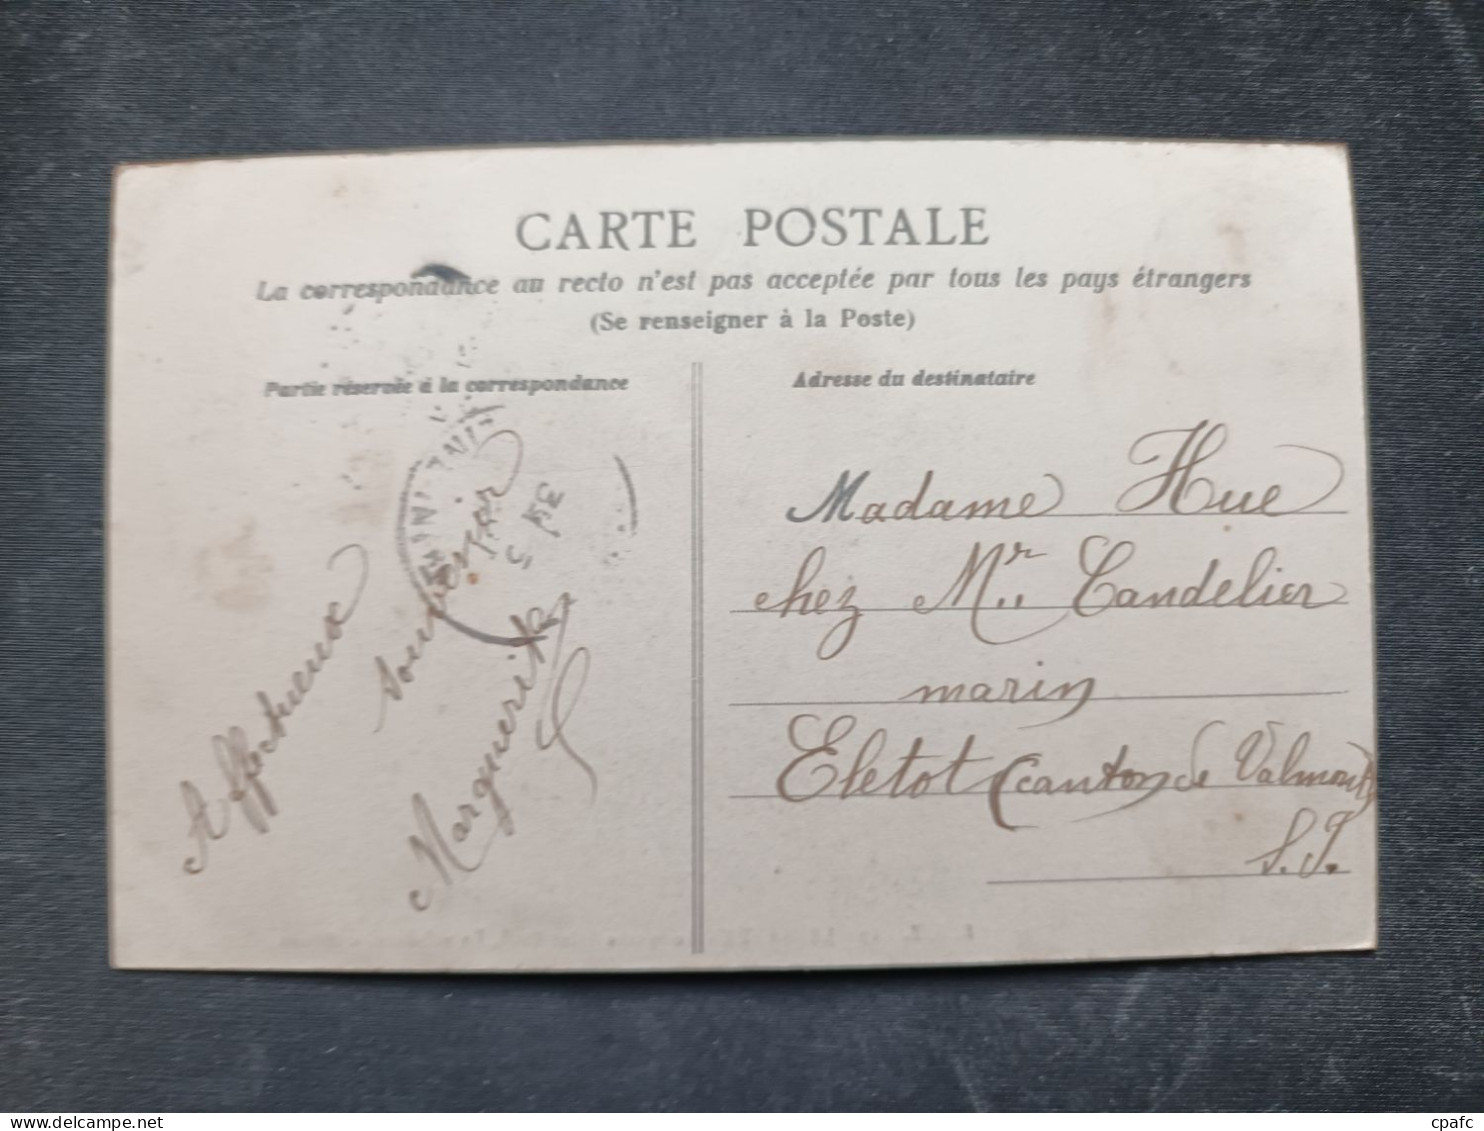 CARTE POSTALE
La correspondance au recto n'est pas acceptée par tous les pays étrangers
(Se renseigner à la Poste)
Partie réservée à la correspondance
Adresse du destinataire
Affectueux
souvenir
Marguerite
Madame Hue
chez Mr Candelier
marin
Eletot (canton de Valmont)
S. I.
delcampe.net
cpafc